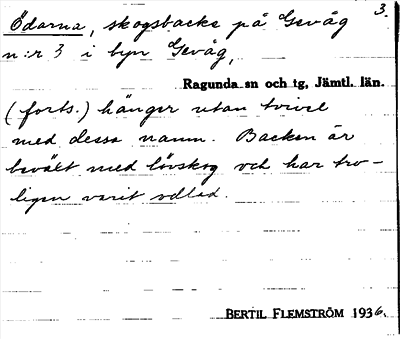 3.
Ödarna, skogsbacke på Gevåg
n:r 3 i byn Gevåg,
Ragunda sn och tg, Jämtl. län.
(forts.) hänger utan tvivel
med dessa namn. Backen är
beväxt med lövskog och har tro-
ligen varit odlad.
BERTIL FLEMSTRÖM 1936.